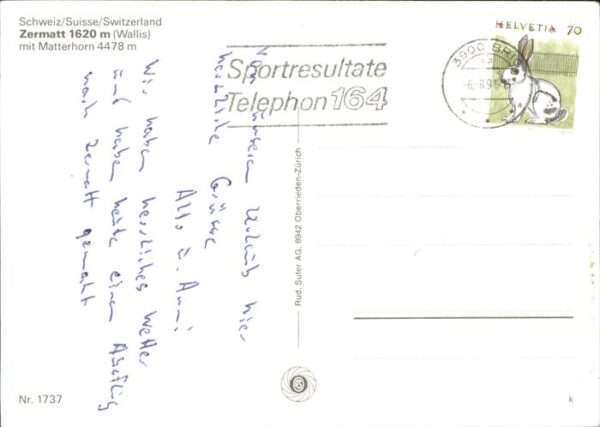 Schweiz/Suisse/Switzerland
Zermatt 1620 m (Wallis)
mit Matterhorn 4478 m
Sportresultate
Telephon 164
3900 BRIG
HELVETIA 70
Von unserem Urlaub hier
herzliche Grüsse
Wir haben herrliches Wetter
und haben heute einen Ausflug
nach Zermatt gemacht
Rud. Suter AG, 8942 Oberrieden-Zürich
Nr. 1737
k